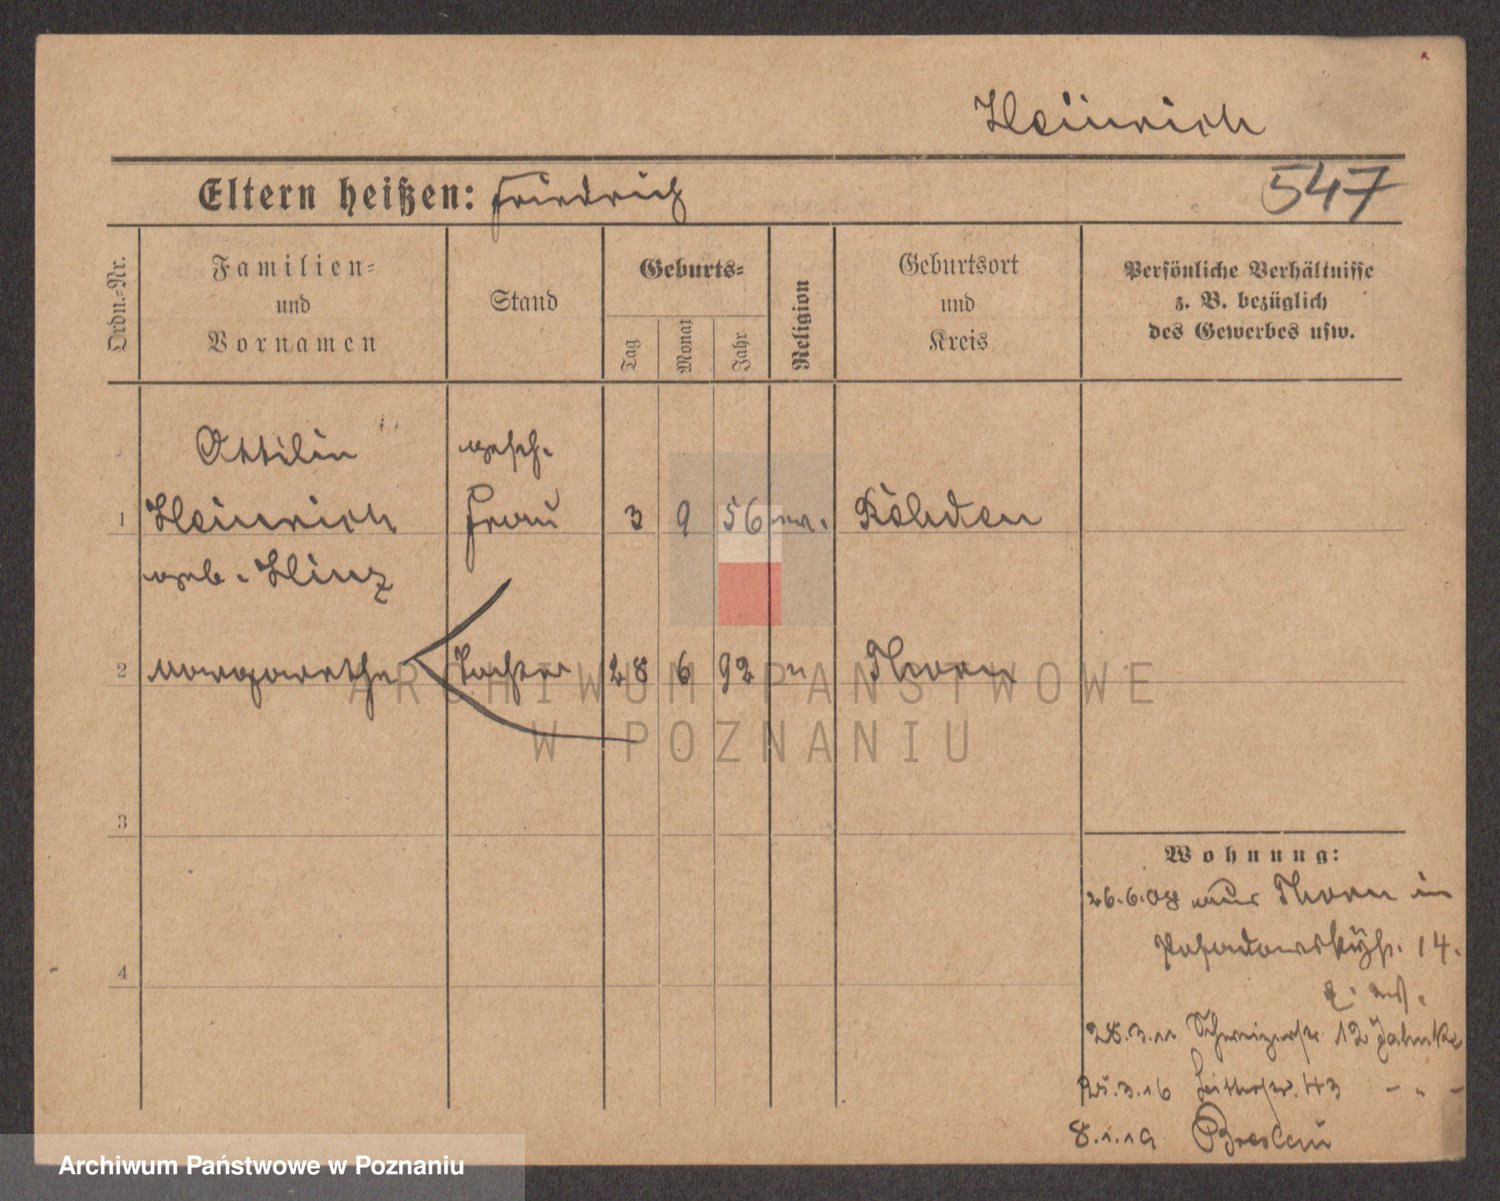 Heinrich
Eltern heißen: Friedrich
547
Ordn.=Nr.
Familien=
und
Vornamen
Stand
Geburts=
Tag
Monat
Jahr
Religion
Geburtsort
und
Kreis
Persönliche Verhältnisse
z. B. bezüglich
des Gewerbes usw.
Ottilie
gesch.
1 Heinrich Frau 3 9 56 ev.
geb. Hinz
2 Margarethe Tochter 28 6 92 " Thorn
3
4
Wohnung:
26.6.08 aus Thorn in
Posadowskystr. 14.
28.3.11 12 Jahnke
25.3.16 43 - " -
8.1.19 Breslau
ARCHIWUM PAŃSTWOWE
W POZNANIU
Archiwum Państwowe w Poznaniu